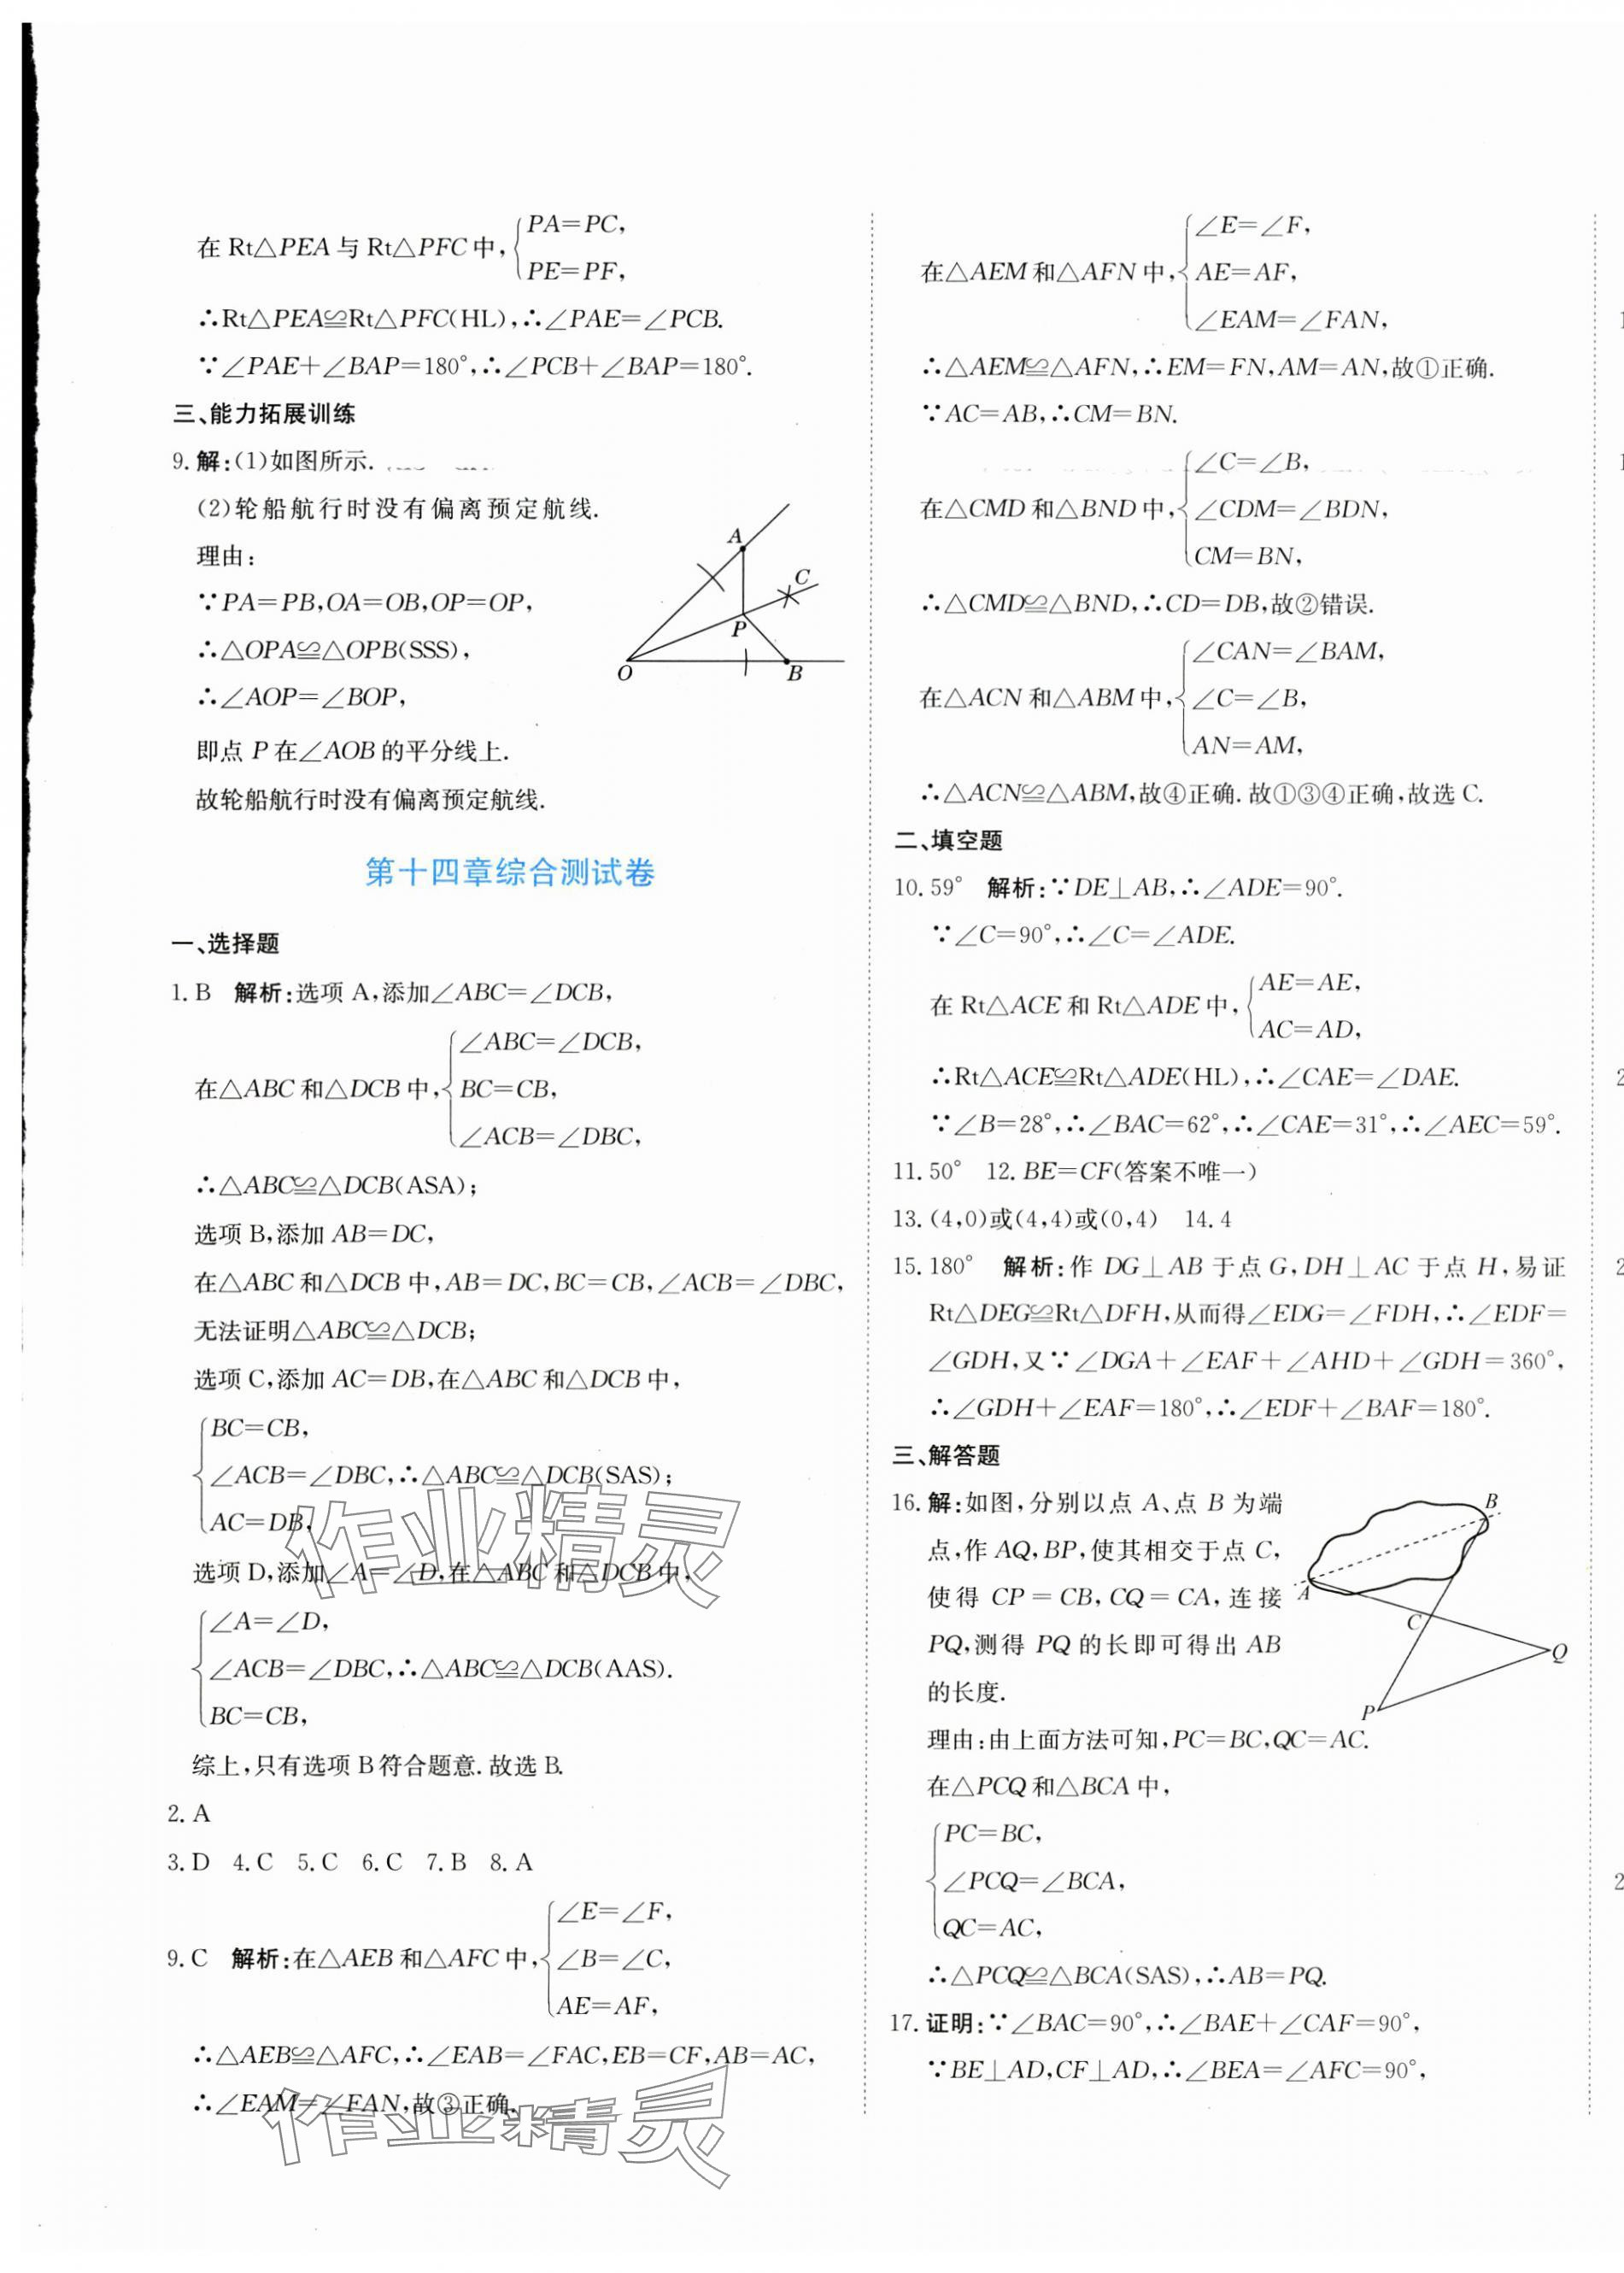 在 Rt△PEA 与 Rt△PFC 中,{PA=PC,
PE=PF,
∴Rt△PEA≌Rt△PFC(HL),∴∠PAE=∠PCB.
∵∠PAE+∠BAP=180°,∴∠PCB+∠BAP=180°.
三、能力拓展训练
9.解:(1)如图所示.
(2)轮船航行时没有偏离预定航线.
理由:
∵PA=PB,OA=OB,OP=OP,
∴△OPA≌△OPB(SSS),
∴∠AOP=∠BOP,
即点 P 在∠AOB 的平分线上.
故轮船航行时没有偏离预定航线.
A
C
P
O
B
第十四章综合测试卷
一、选择题
1. B 解析:选项 A,添加∠ABC=∠DCB,
在△ABC 和△DCB 中,{∠ABC=∠DCB,
BC=CB,
∠ACB=∠DBC,
∴△ABC≌△DCB(ASA);
选项 B,添加 AB=DC,
在△ABC 和△DCB 中,AB=DC,BC=CB,∠ACB=∠DBC,
无法证明△ABC≌△DCB;
选项 C,添加 AC=DB,在△ABC 和△DCB 中,
{BC=CB,
∠ACB=∠DBC,∴△ABC≌△DCB(SAS);
AC=DB,
选项 D,添加∠A=∠D,在△ABC 和△DCB 中,
{∠A=∠D,
∠ACB=∠DBC,∴△ABC≌△DCB(AAS).
BC=CB,
综上,只有选项 B 符合题意.故选 B.
2. A
3. D 4. C 5. C 6. C 7. B 8. A
9. C 解析:在△AEB 和△AFC 中,{∠E=∠F,
∠B=∠C,
AE=AF,
∴△AEB≌△AFC,∴∠EAB=∠FAC,EB=CF,AB=AC,
∴∠EAM=∠FAN,故③正确.
在△AEM 和△AFN 中,{∠E=∠F,
AE=AF,
∠EAM=∠FAN,
∴△AEM≌△AFN,∴EM=FN,AM=AN,故①正确.
∵AC=AB,∴CM=BN.
在△CMD 和△BND 中,{∠C=∠B,
∠CDM=∠BDN,
CM=BN,
∴△CMD≌△BND,∴CD=DB,故②错误.
在△ACN 和△ABM 中,{∠CAN=∠BAM,
∠C=∠B,
AN=AM,
∴△ACN≌△ABM,故④正确.故①③④正确,故选 C.
二、填空题
10. 59° 解析:∵DE⊥AB,∴∠ADE=90°.
∵∠C=90°,∴∠C=∠ADE.
在 Rt△ACE 和 Rt△ADE 中,{AE=AE,
AC=AD,
∴Rt△ACE≌Rt△ADE(HL),∴∠CAE=∠DAE.
∵∠B=28°,∴∠BAC=62°,∴∠CAE=31°,∴∠AEC=59°.
11. 50° 12. BE=CF(答案不唯一)
13. (4,0)或(4,4)或(0,4) 14. 4
15. 180° 解析:作 DG⊥AB 于点 G,DH⊥AC 于点 H,易证
Rt△DEG≌Rt△DFH,从而得∠EDG=∠FDH,∴∠EDF=
∠GDH,又∵∠DGA+∠EAF+∠AHD+∠GDH=360°,
∴∠GDH+∠EAF=180°,∴∠EDF+∠BAF=180°.
三、解答题
16. 解:如图,分别以点 A、点 B 为端
点,作 AQ,BP,使其相交于点 C,
使得 CP=CB,CQ=CA,连接
PQ,测得 PQ 的长即可得出 AB
的长度.
B
A
C
Q
P
理由:由上面方法可知,PC=BC,QC=AC.
在△PCQ 和△BCA 中,
{PC=BC,
∠PCQ=∠BCA,
QC=AC,
∴△PCQ≌△BCA(SAS),∴AB=PQ.
17. 证明:∵∠BAC=90°,∴∠BAE+∠CAF=90°,
∵BE⊥AD,CF⊥AD,∴∠BEA=∠AFC=90°,
作业精灵
作业精灵